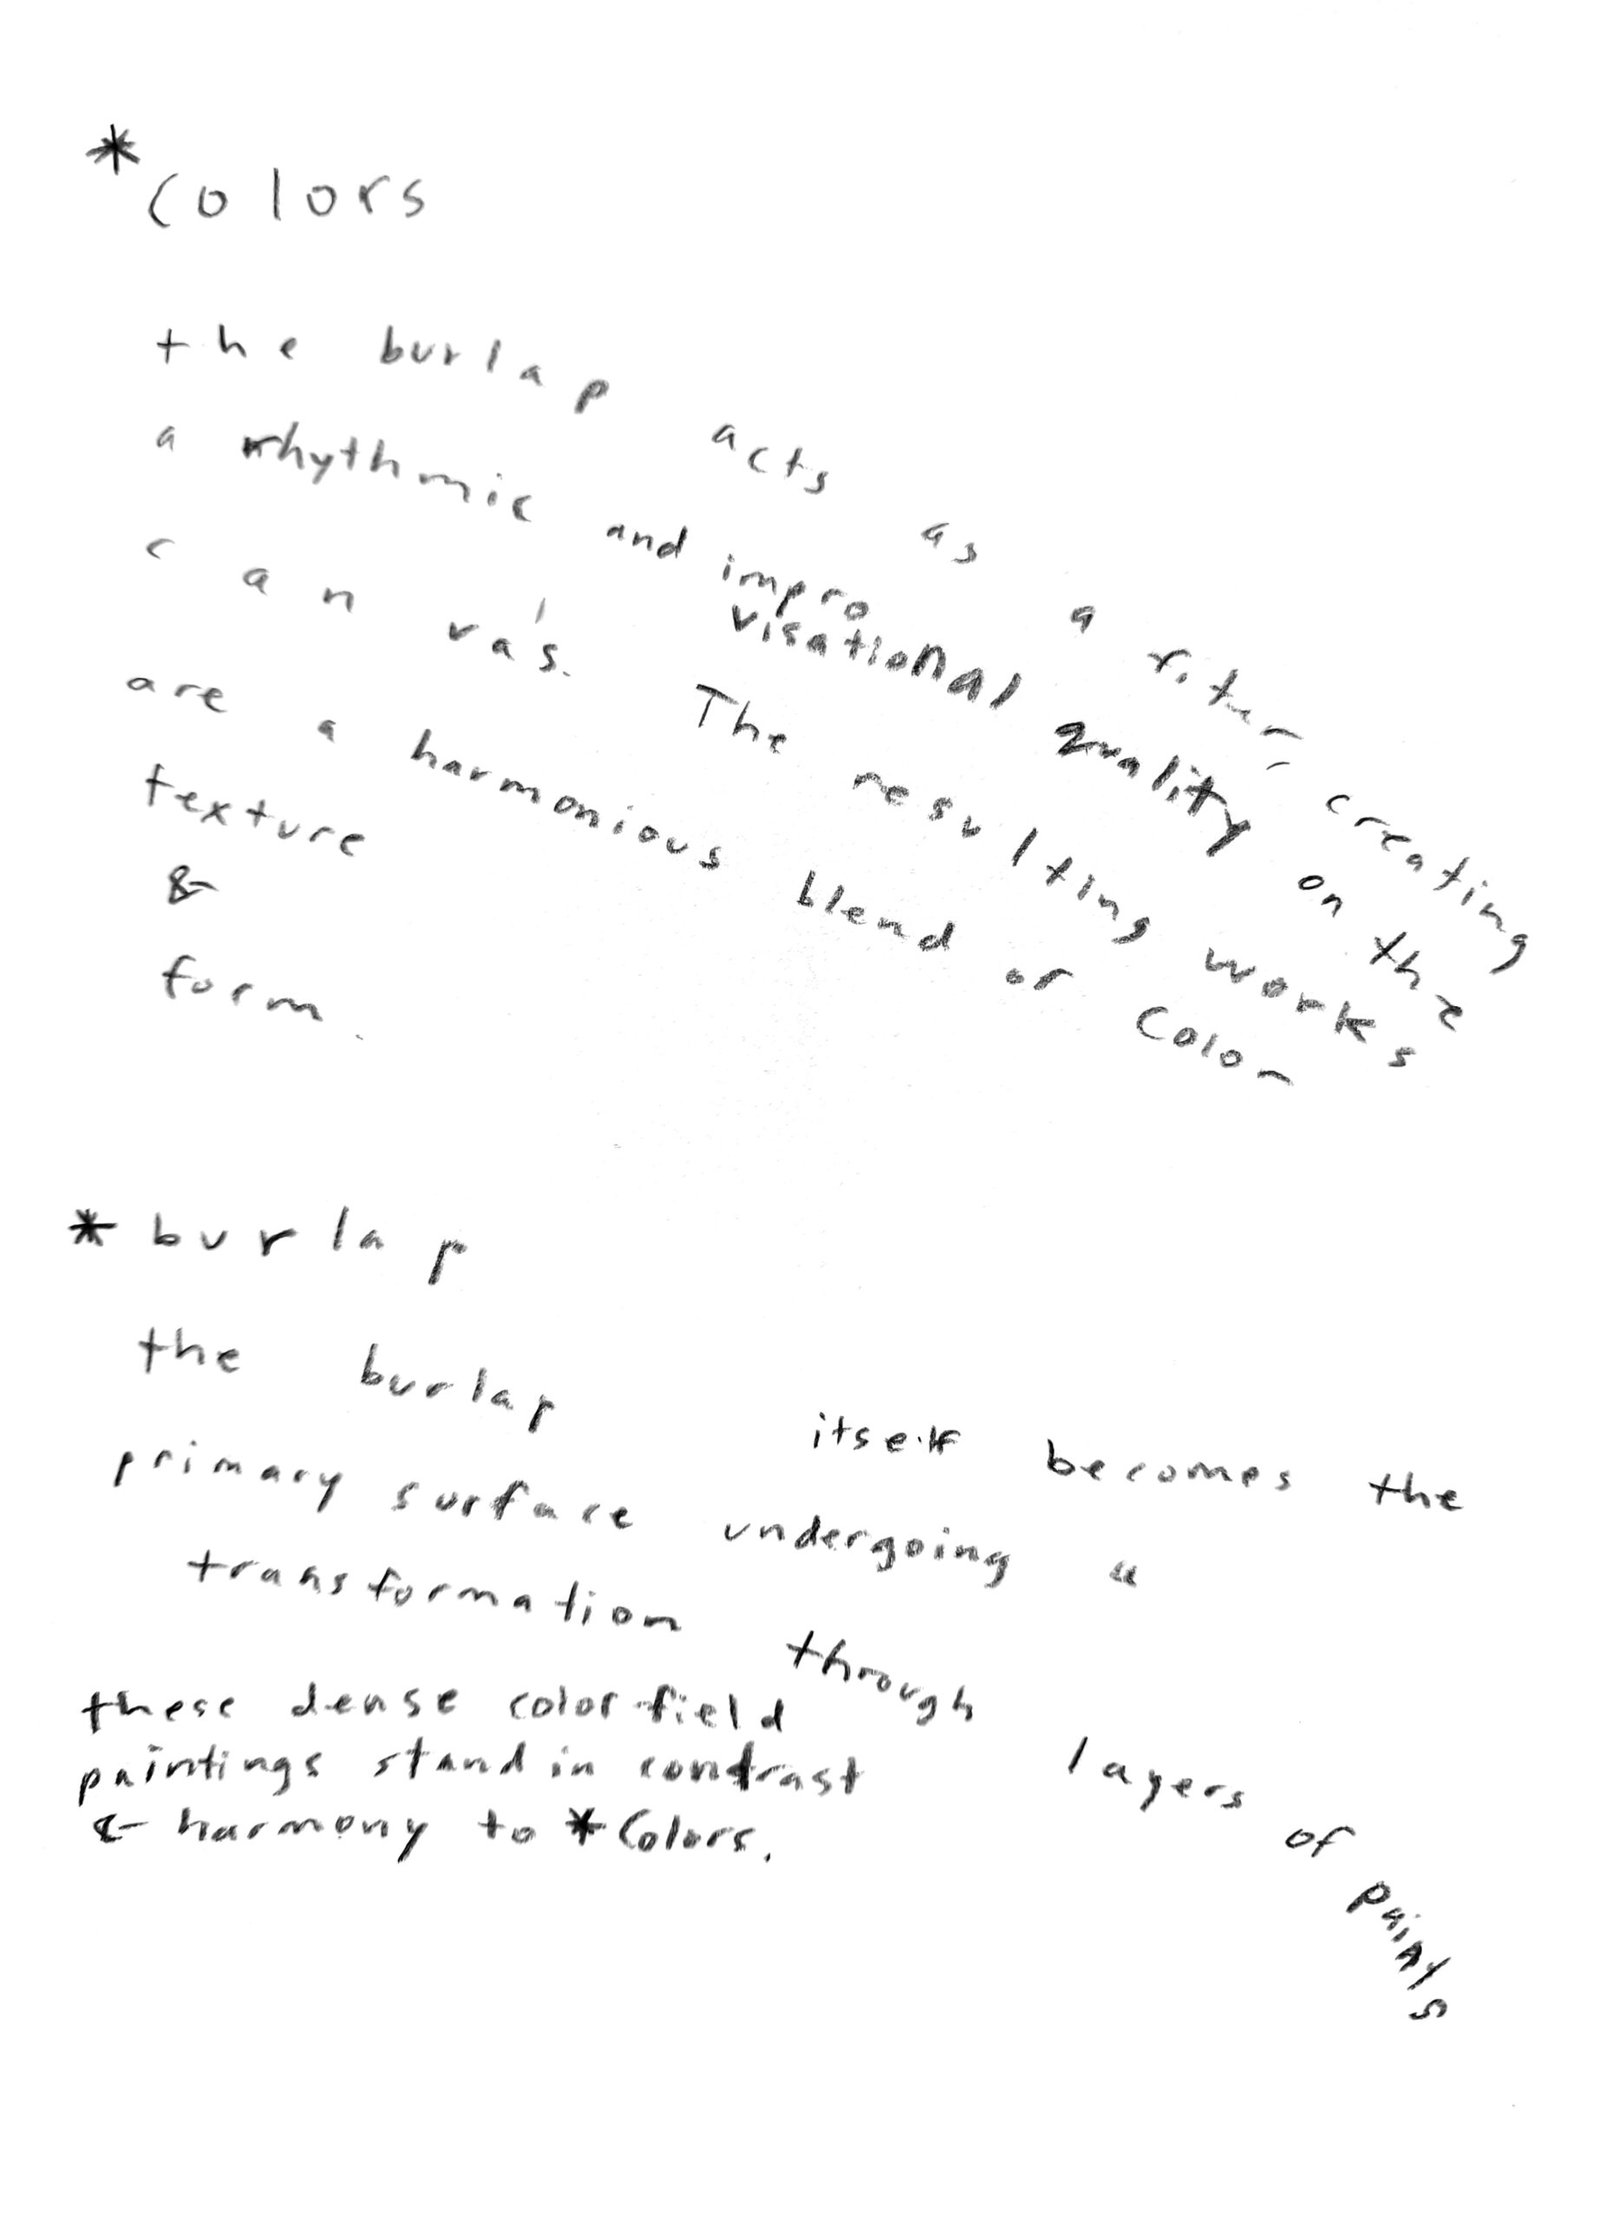 *colors
the burlap acts as a riter, creating
a rhythmic and impro
visational quality on the
can va's. The resulting works
are a harmonious blend of color
texture
&
form.
*burlap
the burlap itself becomes the
primary surface undergoing a
transformation through layers of paints
these dense color field
paintings stand in contrast
& harmony to *Colors.